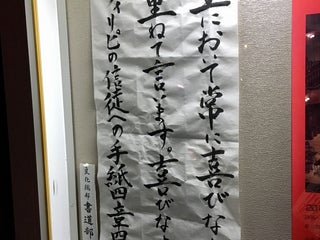 において常に喜びな
重ねて言います。喜びな
ィリピの信徒への手紙四章四
文化総部 書道部
20